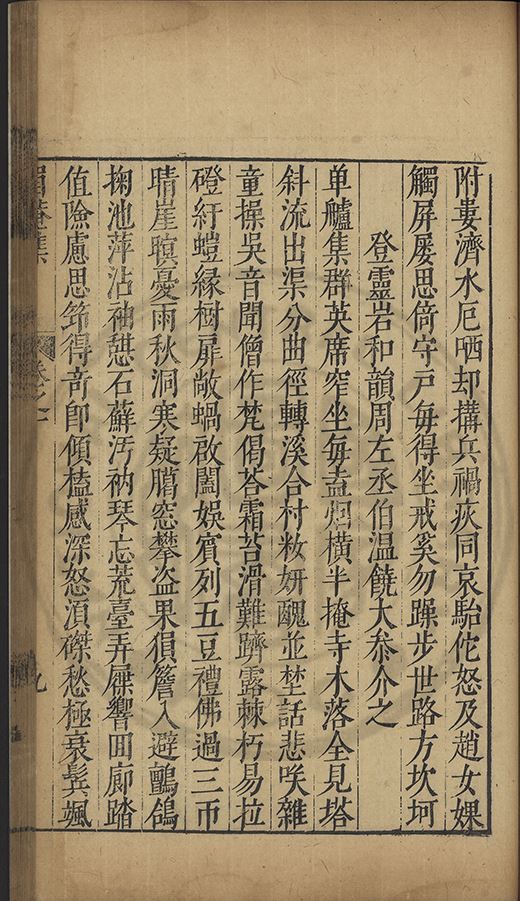 附婁濟水厄哂却搆兵禍疢同哀駘佗怒及趙女婐
觸屏屢思倚守戸每得坐戒奚勿躁步世路方坎坷
登靈岩和韻周左丞伯温饒大叅介之
单艫集群英席窄坐每盍烟橫半掩寺木落全見塔
斜流出渠分曲徑轉溪合村籹妍醜並埜話悲咲雜
童操吳音聞僧作梵偈荅霜苔滑難躋露棘朽易拉
磴紆螘緣樹扉敞蝸啟闔娛賓列五豆禮佛過三帀
晴崖暝憂雨秋洞寒疑臈窓攀盗果狙簷入避鸇鴿
掬池萍沾袖憇石蘚汚衲琴忘荒臺弄屧響囬廊踏
值險慮思筇得竒即傾榼感深怒湏磔愁極衰鬓颯
眉菴集 卷之一 九